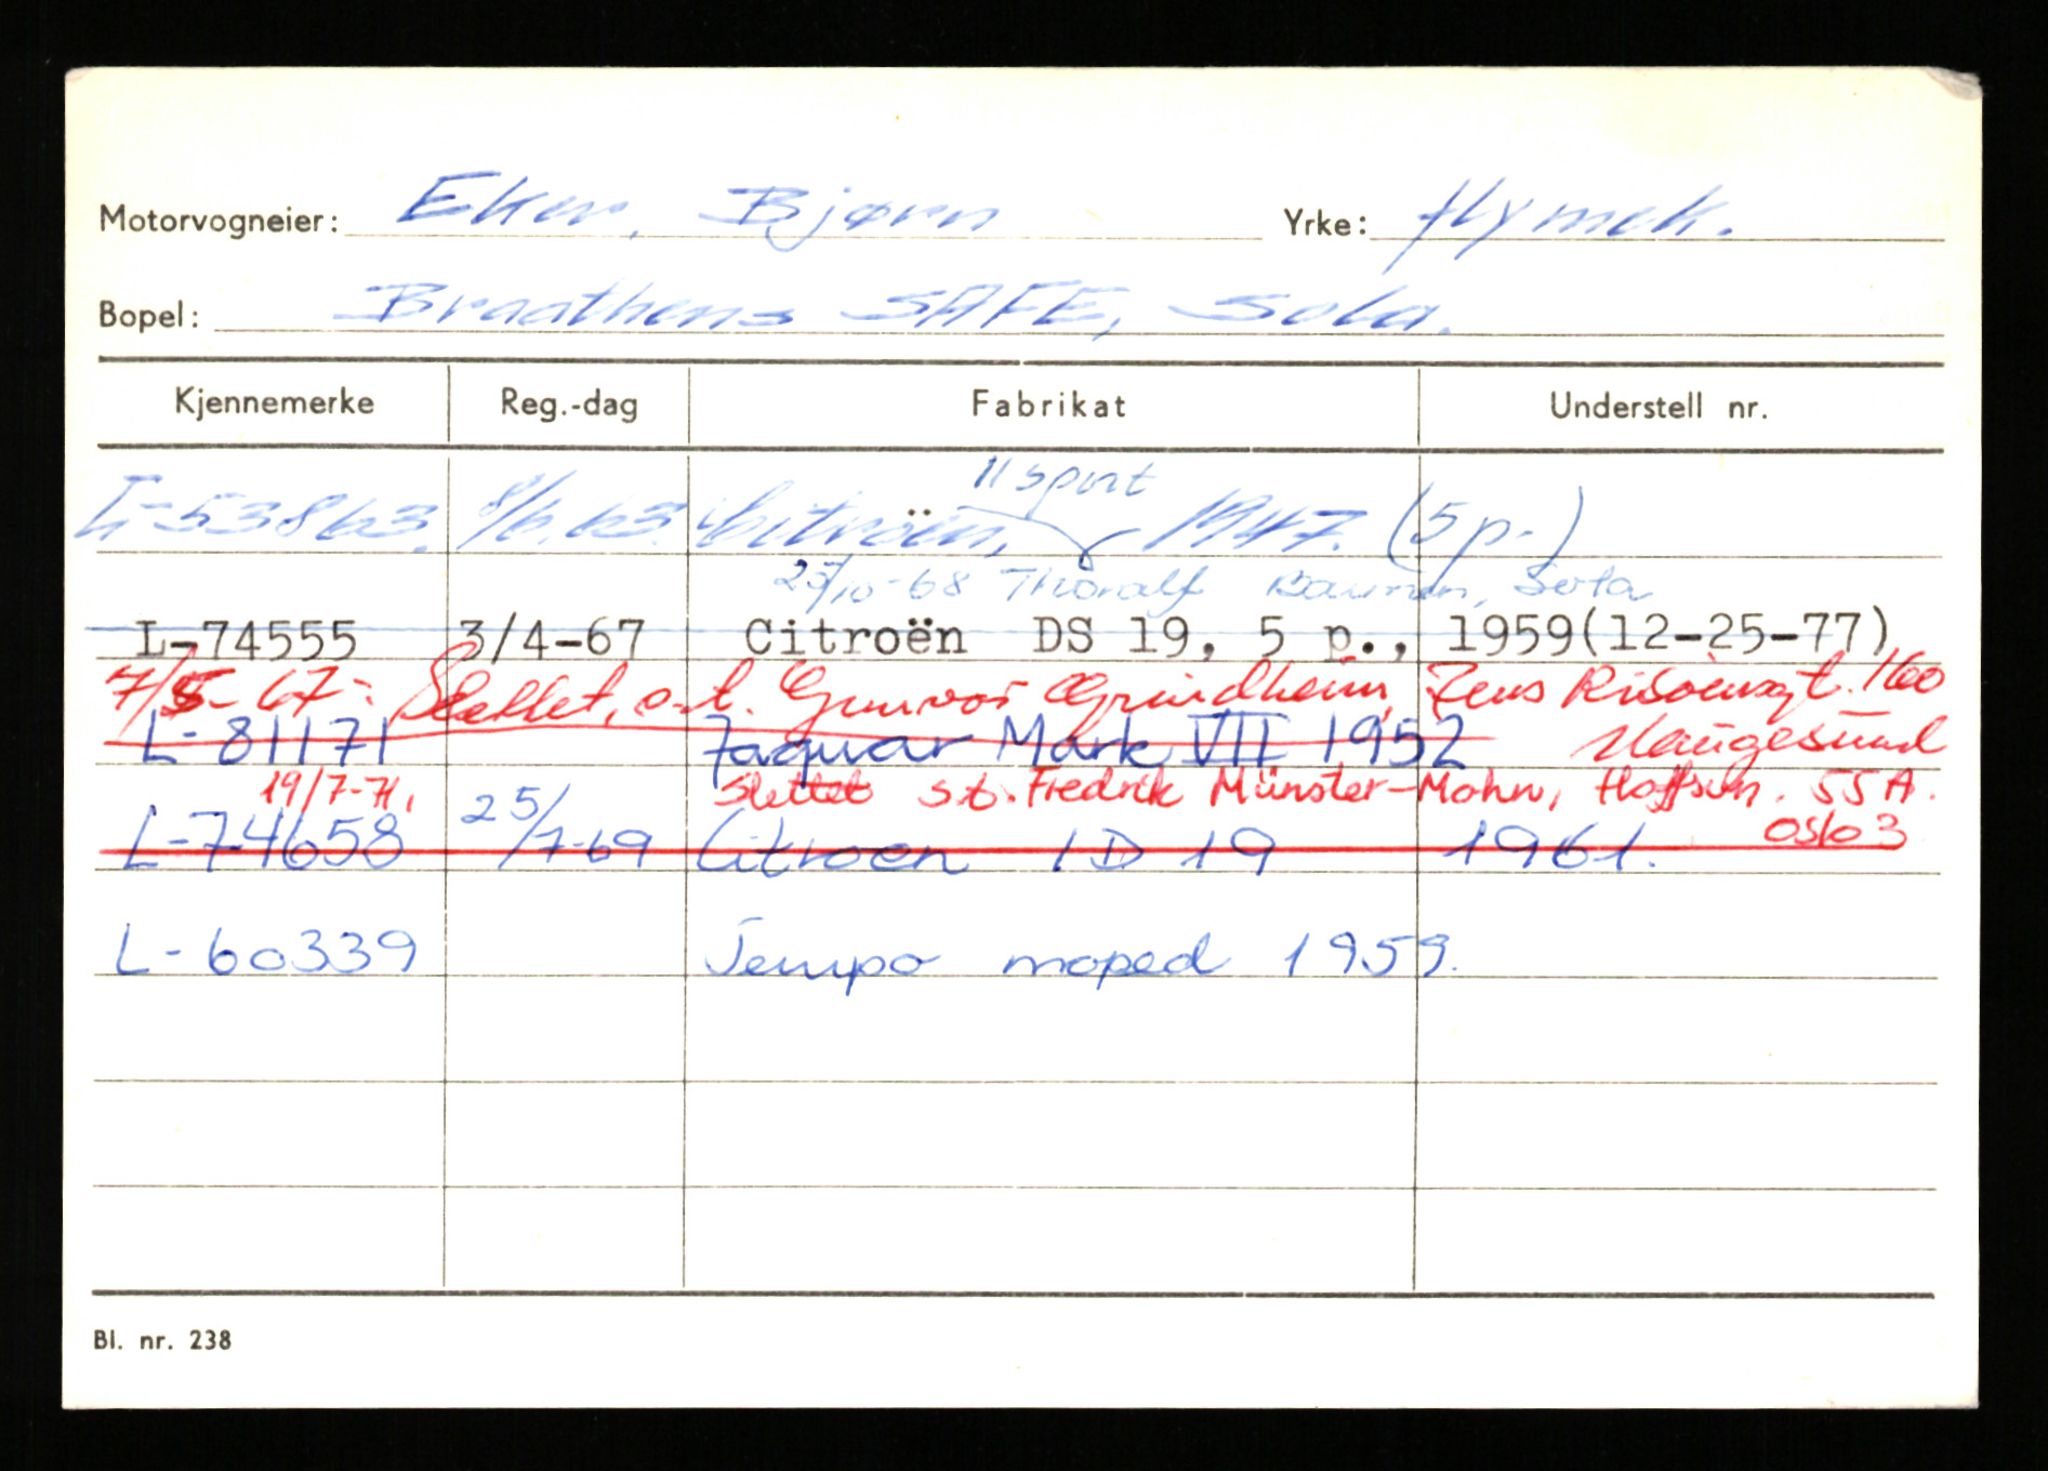 Motorvogneier: Eker, Bjørn Yrke: flymek.
Bopel: Braathens SAFE, Sola.
Kjennemerke Reg.-dag Fabrikat Understell nr.
11 sport
L-53863. 8/6.63. Citroën, 1947. (5 p.)
25/10-68 Thoralf Sola
L-74555 3/4-67 Citroën DS 19, 5 p., 1959(12-25-77)
7/5-67: Slettet, s.t. Gunvor Grindheim, Jens Risøensgt. 160
L-81171 Jaquar Mark VII 1952 Haugesund
19/7-71, Slettet s.t. Fredrik Münster-Mohn, Hoffsvn. 55 A.
Oslo 3
L-74658 25/7-69 Citroen ID 19 1961.
L-60339 Tempo moped 1959.
Bl. nr. 238